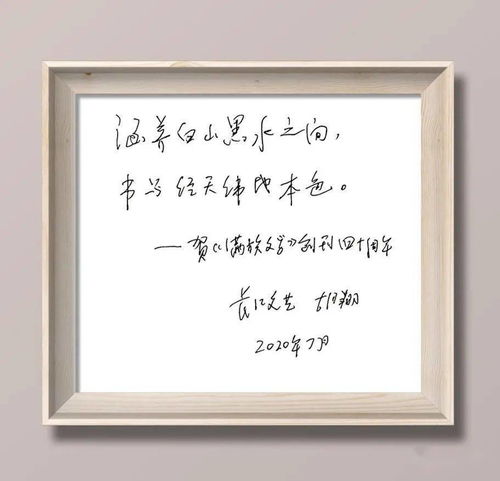 涵养白山黑水之间，
书写经天纬地本色。
——贺《满族文学》创刊四十周年
长江文艺 胡翔
2020年7月